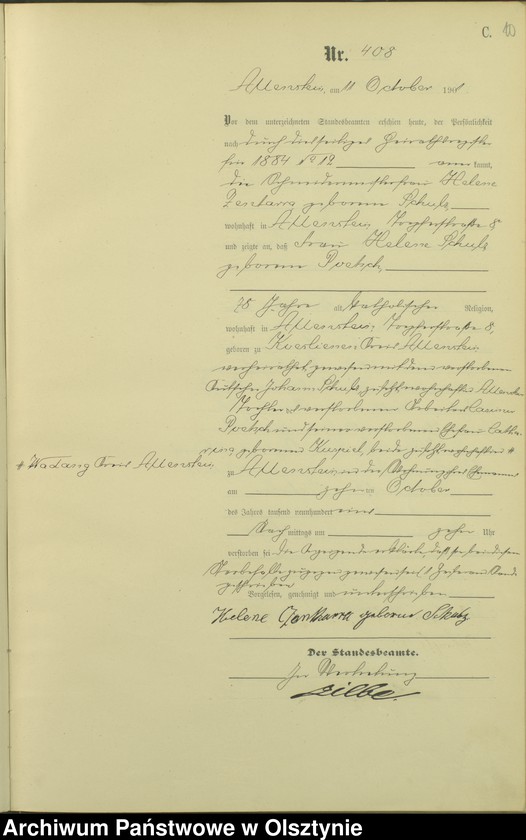 C. 10
Nr. 408
Allenstein, am 11 October 1901
Vor dem unterzeichneten Standesbeamten erschien heute, der Persönlichkeit
nach durch diesseitiges Heirathsregister
für 1884 No 12 kannt,
die Schneidermeisterfrau Helene
geborene Schulz,
wohnhaft in Allenstein, Töpferstraße 8
und zeigte an, daß Frau Helene Schulz
geborene Poetsch,
Jahre alt, katholischer Religion,
wohnhaft in Allenstein, Töpferstraße 8,
geboren zu Kreis Allenstein
verheirathet gewesen mit dem verstorbenen
Johann Schulz, zuletzt wohnhaft in Allenstein
Tochter des verstorbenen Arbeiters
Poetsch und seiner verstorbenen Ehefrau Catha-
rina geborenen beide zuletzt wohnhaft in #
# Wadang Kreis Allenstein
zu Allenstein in der Wohnung
am zehnten October
des Jahres tausend neunhundert eins
Nachmittags um zehn Uhr
verstorben sei. Die Anzeigende erklärte, daß sie bei diesem
Sterbefalle zugegen gewesen sei.
Vorgelesen, genehmigt und unterschrieben
Helene geborene Schulz
Der Standesbeamte.
In Vertretung
Zilbe.
Archiwum Państwowe w Olsztynie